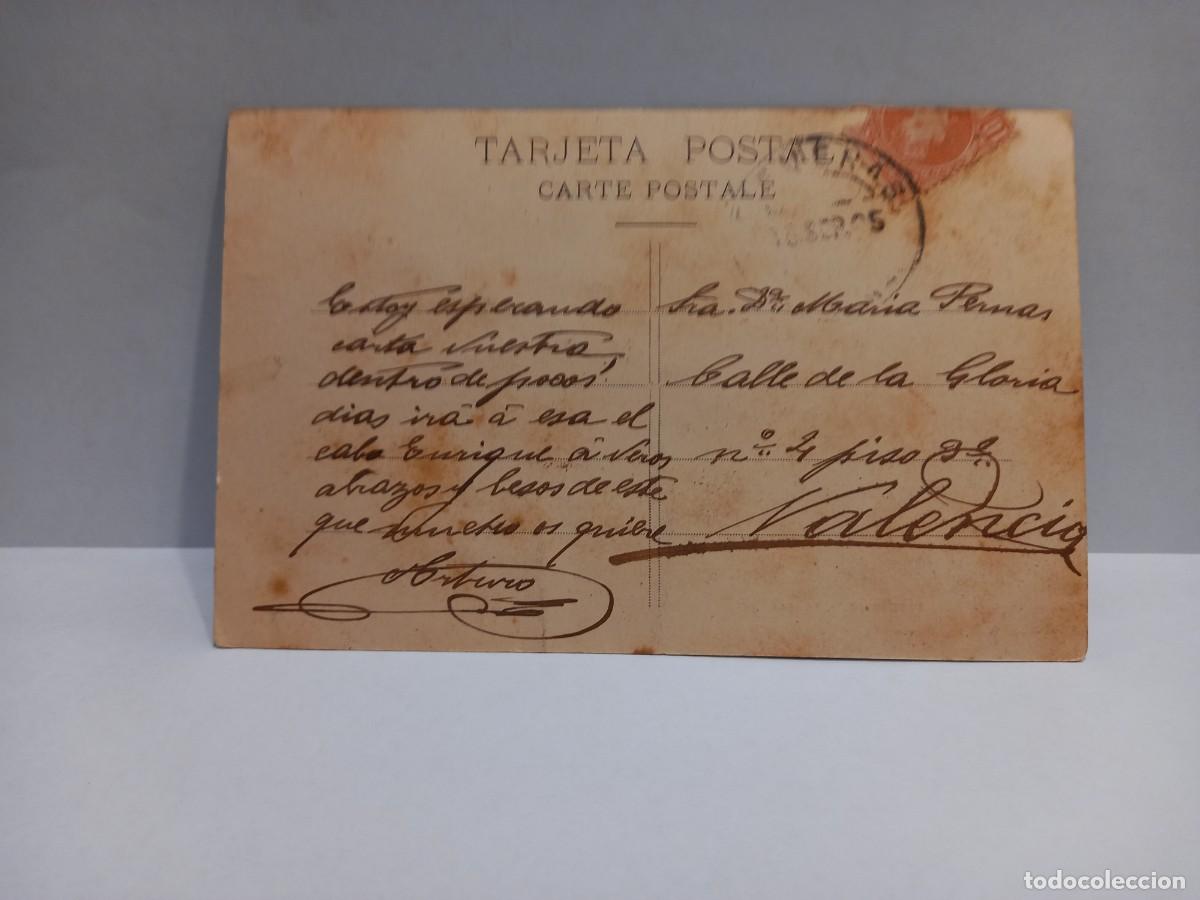 TARJETA POSTAL
CARTE POSTALE
Estoy esperando
carta vuestra
dentro de pocos
dias irá á esa el
cabo Enrique á veros
abrazos y besos de este
que muetro os quiere
Arturo
Sra. Dª. Maria Pernas
Calle de la Gloria
nº 4 piso 2º
Valencia
todocoleccion